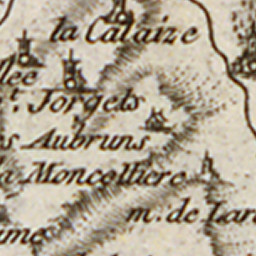 la Calaize
llee
t. Jorgets
s Aubruns
la Moncelliere
m. de Lar
ume